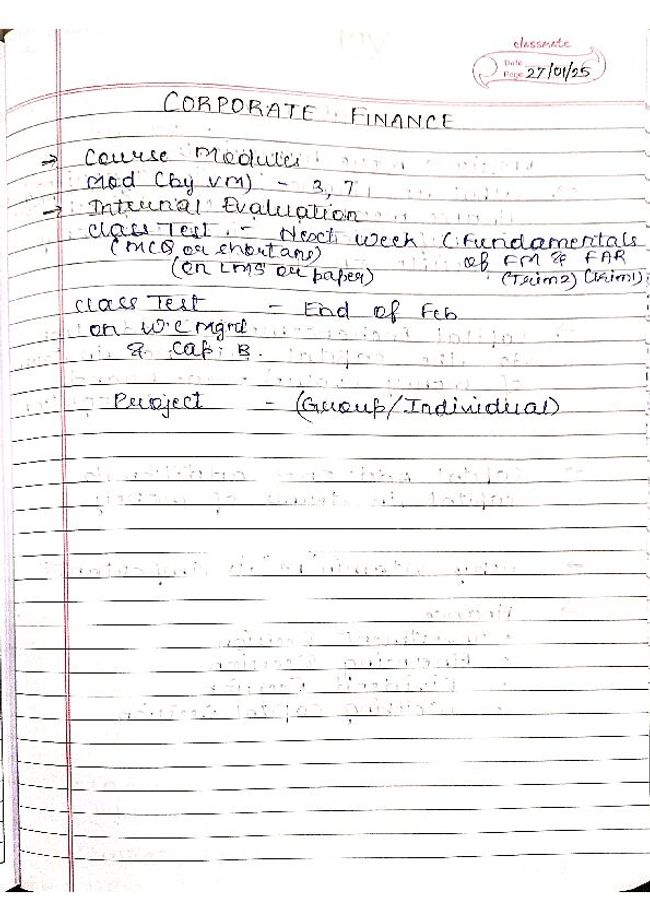 classmate
Date
Page 27/01/25
CORPORATE FINANCE
→ Course Modules
Mod (by VM) - 3, 7
→ Internal Evaluation
Class Test - Next Week (Fundamentals
(MCQ or short ans) of FM & FAR
(on LMS or paper) (Trim2) (Trim1)
Class Test - End of Feb
on W.C Mgmt
& Cap. B.
Project - (Group/Individual)